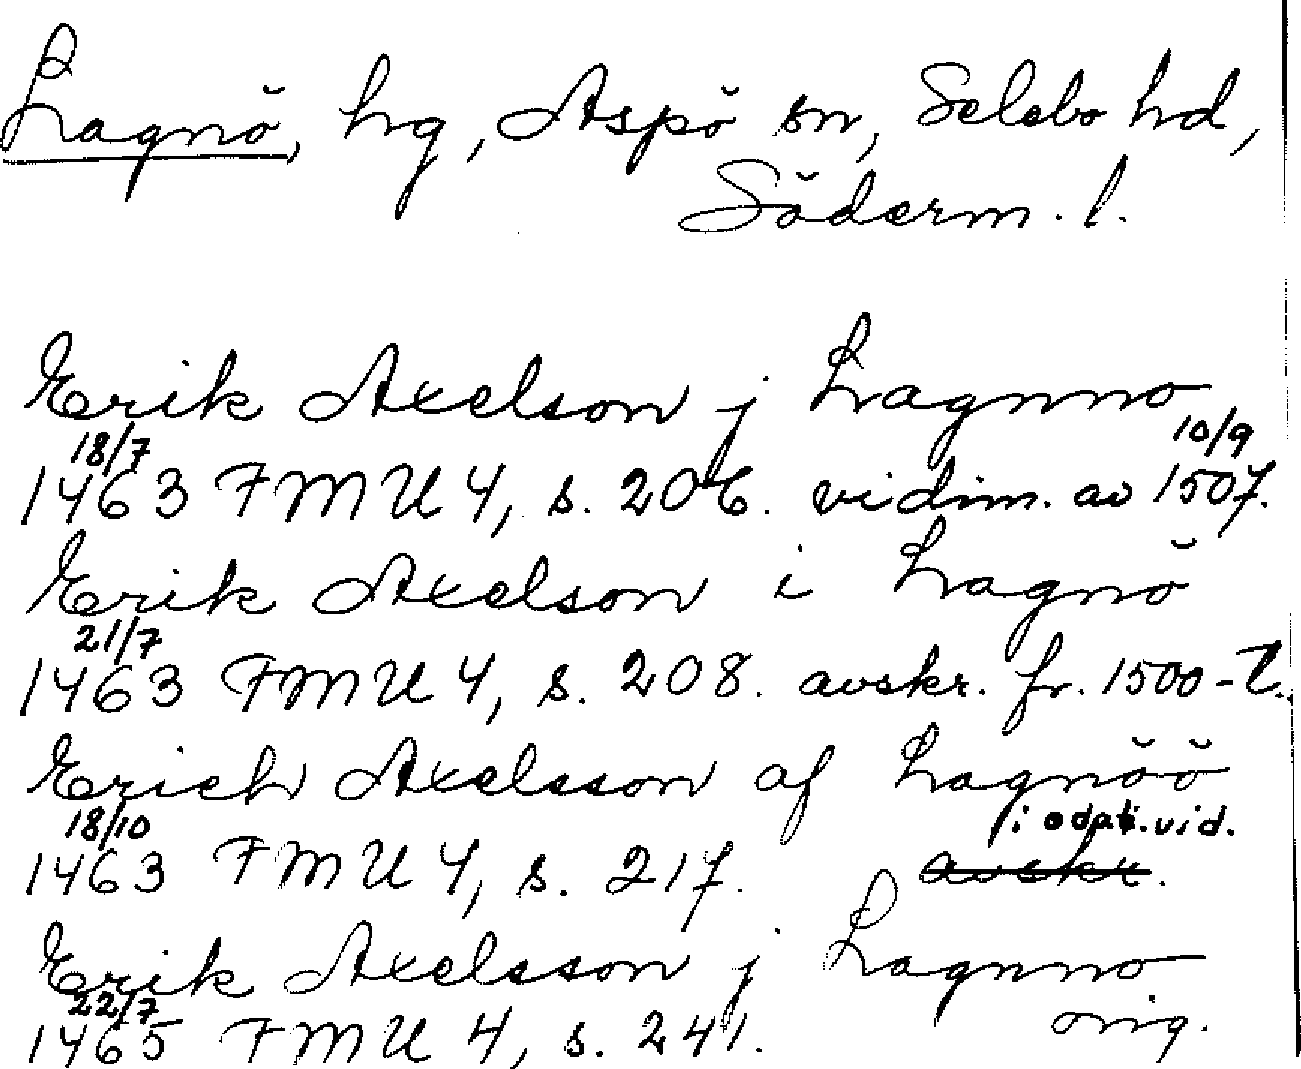 Lagnö, hg, Aspö sn, Selebo hd,
Söderm. l.
Erik Axelson j Lagnno
18/7 10/9
1463 FMU 4, s. 206. vidim. av 1507.
Erik Axelson i Lagnö
21/7
1463 FMU 4, s. 208. avskr. fr. 1500-t.
Erich Axelsson af Lagnöö
18/10 i odat. vid.
1463 FMU 4, s. 217. avskr.
Erik Axelsson j Lagnno
22/7 orig.
1465 FMU 4, s. 241.